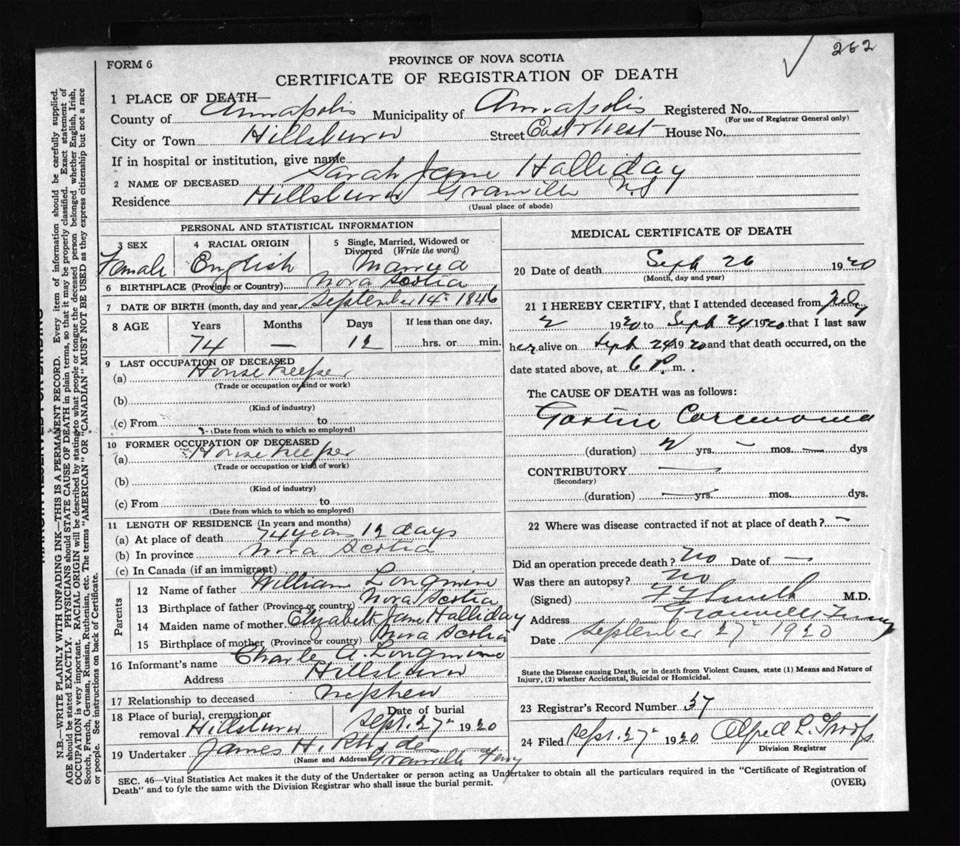 262
FORM 6
PROVINCE OF NOVA SCOTIA
CERTIFICATE OF REGISTRATION OF DEATH
1 PLACE OF DEATH—
County of Annapolis Municipality of Annapolis Registered No.
(For use of Registrar General only)
City or Town Hillsburn Street East & West House No.
If in hospital or institution, give name
2 NAME OF DECEASED Sarah Jane Halliday
Residence Hillsburn Granville NS
(Usual place of abode)
PERSONAL AND STATISTICAL INFORMATION
3 SEX 4 RACIAL ORIGIN 5 Single, Married, Widowed or Divorced (Write the word)
Female English Married
6 BIRTHPLACE (Province or Country) Nova Scotia
7 DATE OF BIRTH (month, day and year) September 14th 1846
8 AGE Years Months Days If less than one day,
74 — 12 hrs. or min.
9 LAST OCCUPATION OF DECEASED
(a) House Keeper
(Trade or occupation or kind of work)
(b)
(Kind of industry)
(c) From to
(Date from which to which so employed)
10 FORMER OCCUPATION OF DECEASED
(a) House Keeper
(Trade or occupation or kind of work)
(b)
(Kind of industry)
(c) From to
(Date from which to which so employed)
11 LENGTH OF RESIDENCE (In years and months)
(a) At place of death 74 years 12 days
(b) In province Nova Scotia
(c) In Canada (if an immigrant)
Parents
12 Name of father William Longmire
13 Birthplace of father (Province or country) Nova Scotia
14 Maiden name of mother Elizabeth Jane Halliday
15 Birthplace of mother (Province or country) Nova Scotia
16 Informant's name Charle A. Longmire
Address Hillsburn
17 Relationship to deceased Nephew
18 Place of burial, cremation or removal Hillsburn Date of burial Sept. 27th 1920
19 Undertaker James H.
(Name and Address) Granville Ferry
MEDICAL CERTIFICATE OF DEATH
20 Date of death Sept 26 1920
(Month, day and year)
21 I HEREBY CERTIFY, that I attended deceased from July
2 1920 to Sept 24 1920 that I last saw
her alive on Sept 24 1920 and that death occurred, on the
date stated above, at 6 P. m.
The CAUSE OF DEATH was as follows:
Gastric Carcinoma
(duration) 2 yrs. — mos. — dys
CONTRIBUTORY —
(Secondary)
(duration) — yrs. mos. dys.
22 Where was disease contracted if not at place of death? —
Did an operation precede death? No Date of —
Was there an autopsy? No
(Signed) Smith M.D.
Address Granville Ferry
Date September 27th 1920
State the Disease causing Death, or in death from Violent Causes, state (1) Means and Nature of
Injury, (2) whether Accidental, Suicidal or Homicidal.
23 Registrar's Record Number 37
24 Filed Sept. 27th 1920 Alfred L.
Division Registrar
SEC. 46—Vital Statistics Act makes it the duty of the Undertaker or person acting as Undertaker to obtain all the particulars required in the "Certificate of Registration of
Death" and to fyle the same with the Division Registrar who shall issue the burial permit.
(OVER)
N.B.—WRITE PLAINLY WITH UNFADING INK—THIS IS A PERMANENT RECORD. Every item of information should be carefully supplied.
AGE should be stated EXACTLY. PHYSICIANS should STATE CAUSE OF DEATH in plain terms, so that it may be properly classified. Exact statement of
OCCUPATION is very important. RACIAL ORIGIN will be described by stating to what people or tongue the deceased person belonged whether English, Irish,
Scotch, French, German, Russian, Ruthenian, etc. The terms "AMERICAN" OR "CANADIAN" MUST NOT BE USED as they express citizenship but not a race
or people. See instructions on back of Certificate.